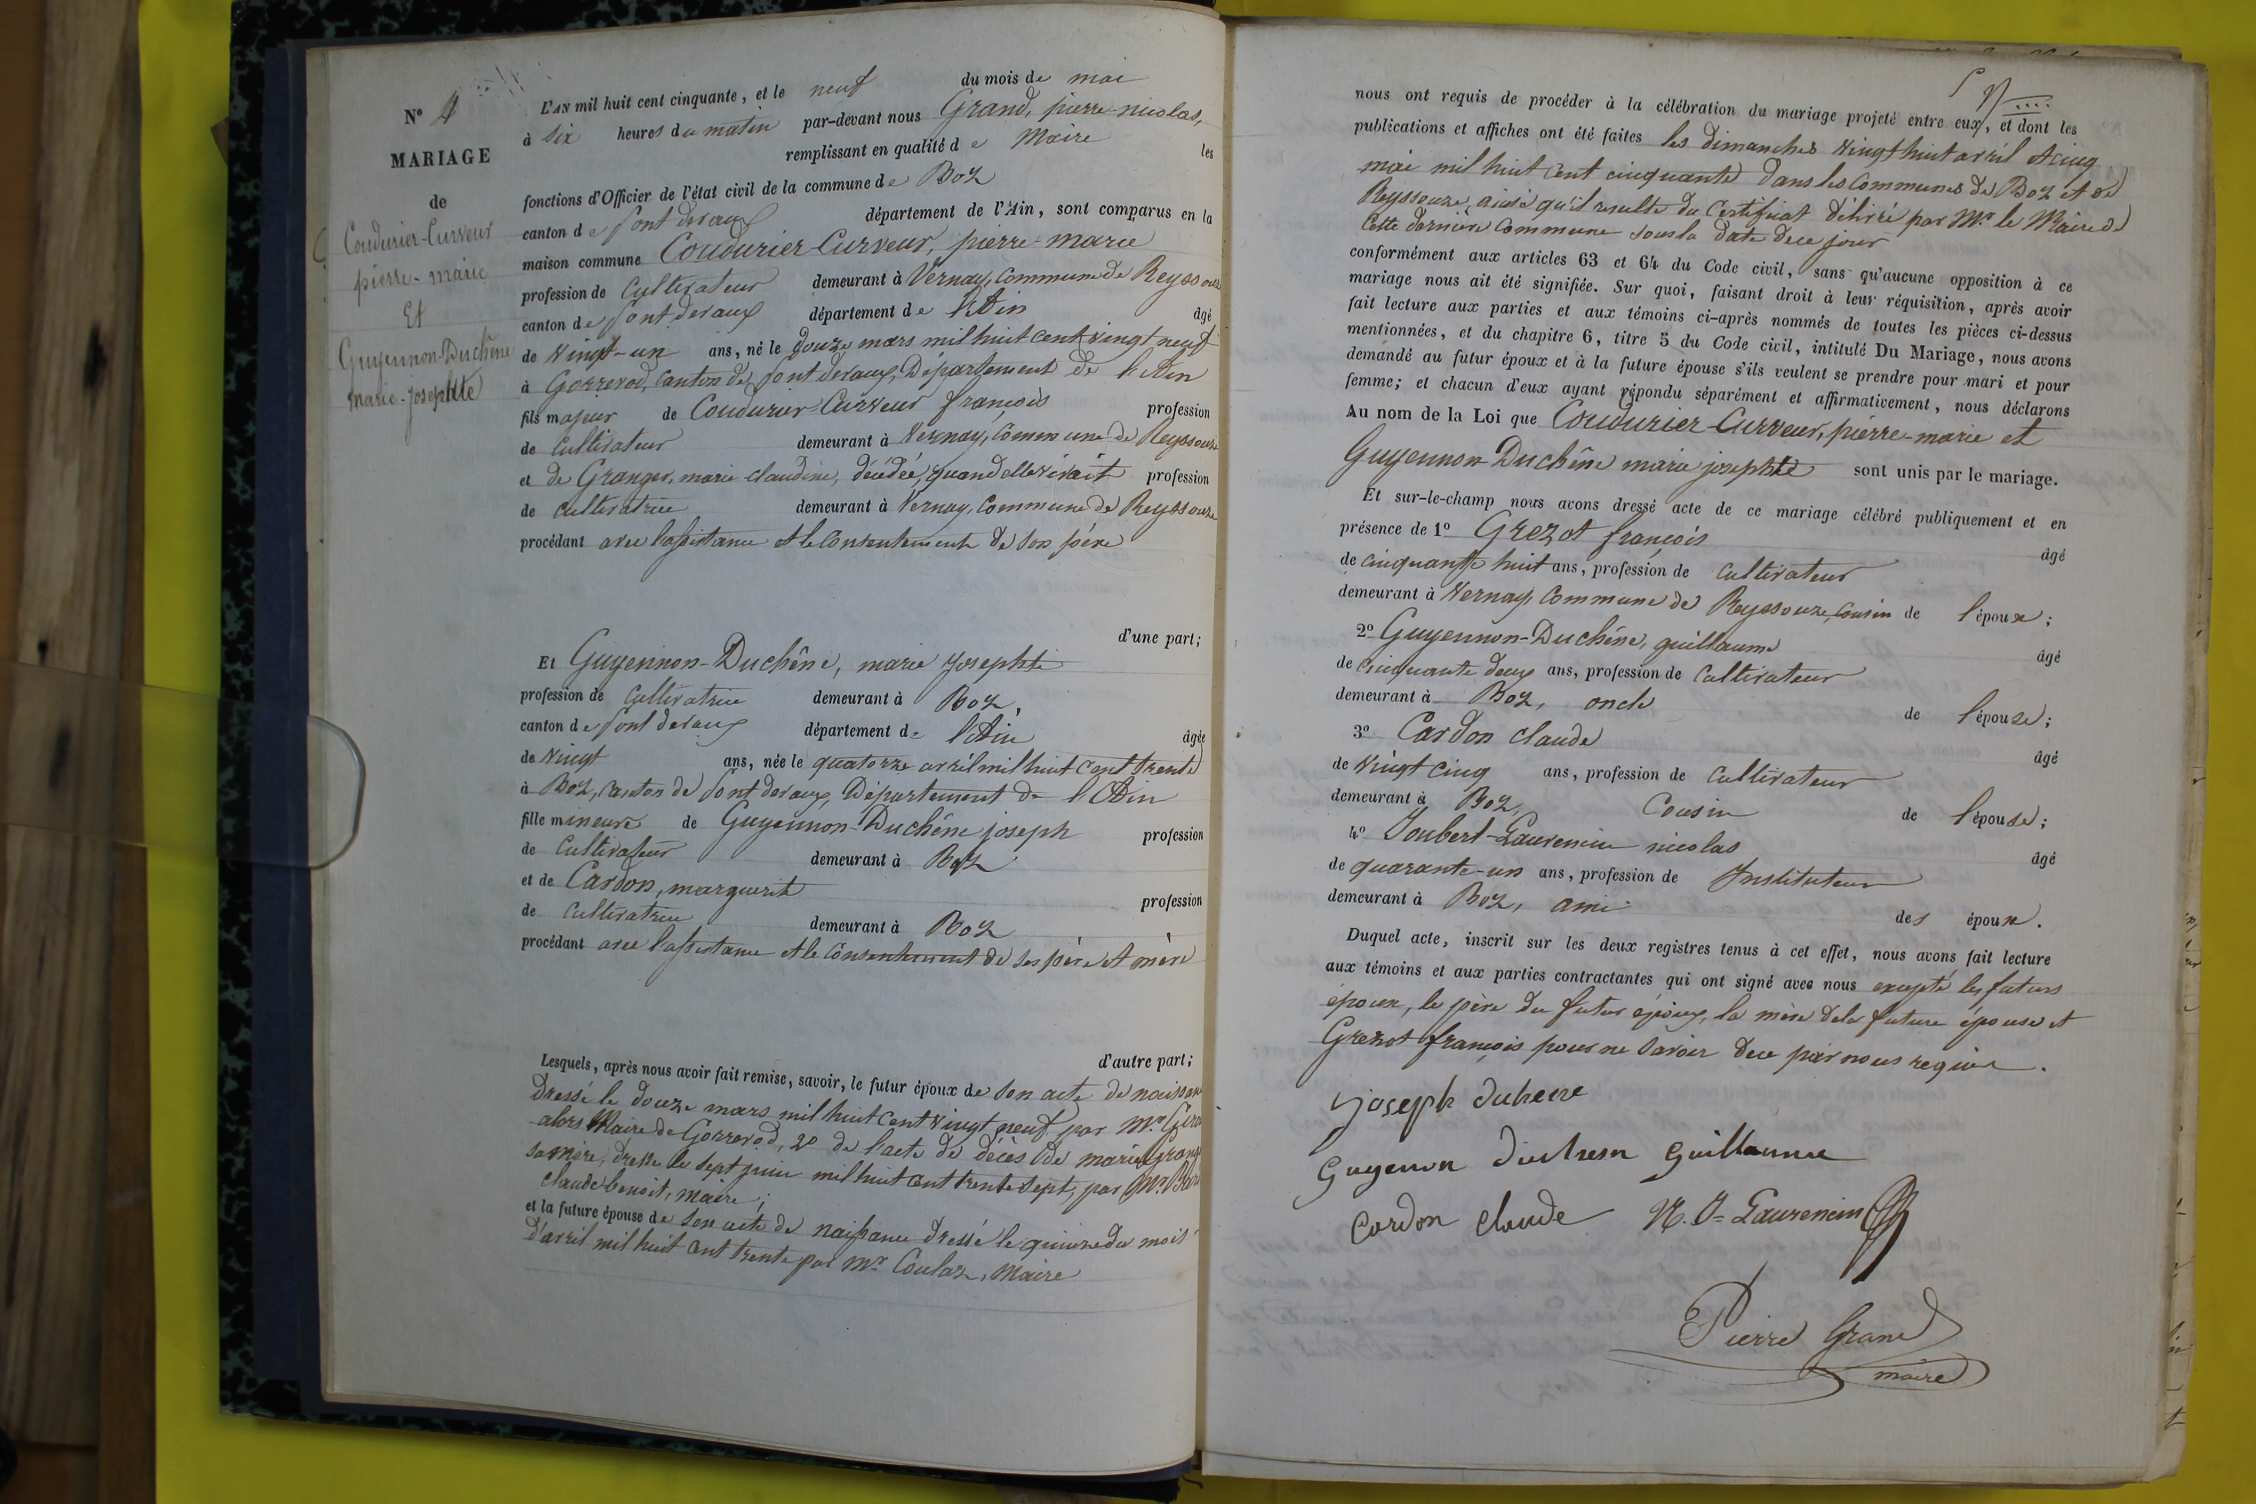 N° 4
MARIAGE
de
Coudurier-Curveur
pierre-marie
Et
Guyennon-Duchêne
marie-josephte
L'AN mil huit cent cinquante, et le neuf du mois de mai
à six heures du matin par-devant nous Grand, pierre-nicolas,
remplissant en qualité de Maire les
fonctions d'Officier de l'état civil de la commune de Boz
canton de Pont devaux département de l'Ain, sont comparus en la
maison commune Coudurier-Curveur, pierre-marie
profession de Cultivateur demeurant à Vernay, commune de Reyssouze
canton de Pont devaux département de l'Ain âgé
de vingt-un ans, né le douze mars mil huit cent vingt neuf
à Gorrevod, canton de Pont devaux, Département de l'Ain
fils majeur de Coudurier-Curveur françois profession
de cultivateur demeurant à Vernay, commune de Reyssouze
et de Granger, marie claudine, décédée, quand elle vivait profession
de cultivatrice demeurant à Vernay, commune de Reyssouze
procédant avec l'assistance et le consentement de son père
d'une part;
Et Guyennon-Duchêne, marie josephte
profession de cultivatrice demeurant à Boz,
canton de Pont devaux département de l'Ain âgée
de vingt ans, née le quatorze avril mil huit cent trente
à Boz, canton de Pont devaux, Département de l'Ain
fille mineure de Guyennon-Duchêne joseph profession
de cultivateur demeurant à Boz
et de Cardon, marguerite profession
de cultivatrice demeurant à Boz
procédant avec l'assistance et le consentement de ses père et mère
d'autre part;
Lesquels, après nous avoir fait remise, savoir, le futur époux de son acte de naissance
Dressé le douze mars mil huit cent vingt neuf par Mr
alors Maire de Gorrevod, 2° de l'acte de décès de marie
sa mère, dressé le sept juin mil huit cent trente sept, par Mr
claude benoit, maire;
et la future épouse de son acte de naissance dressé le quinze du mois
d'avril mil huit cent trente par Mr Coulaz, Maire
nous ont requis de procéder à la célébration du mariage projeté entre eux, et dont les
publications et affiches ont été faites les dimanches vingt huit avril et cinq
mai mil huit cent cinquante dans les communes de Boz et de
Reyssouze, ainsi qu'il resulte du Certificat délivré par Mr le Maire de
Cette dernière commune sous la date de ce jour
conformément aux articles 63 et 64 du Code civil, sans qu'aucune opposition à ce
mariage nous ait été signifiée. Sur quoi, faisant droit à leur réquisition, après avoir
fait lecture aux parties et aux témoins ci-après nommés de toutes les pièces ci-dessus
mentionnées, et du chapitre 6, titre 5 du Code civil, intitulé Du Mariage, nous avons
demandé au futur époux et à la future épouse s'ils veulent se prendre pour mari et pour
femme; et chacun d'eux ayant répondu séparément et affirmativement, nous déclarons
Au nom de la Loi que Coudurier-Curveur, pierre-marie et
Guyennon-Duchêne marie josephte sont unis par le mariage.
Et sur-le-champ nous avons dressé acte de ce mariage célébré publiquement et en
présence de 1° Grezot françois âgé
de cinquante huit ans, profession de cultivateur
demeurant à Vernay, commune de Reyssouze, cousin de l'époux;
2° Guyennon-Duchêne, guillaume âgé
de cinquante deux ans, profession de cultivateur
demeurant à Boz, oncle de l'épouse;
3° Cardon claude âgé
de vingt cinq ans, profession de cultivateur
demeurant à Boz, Cousin de l'épouse;
4° Joubert-Laurencin nicolas âgé
de quarante-un ans, profession de Instituteur
demeurant à Boz, ami des époux.
Duquel acte, inscrit sur les deux registres tenus à cet effet, nous avons fait lecture
aux témoins et aux parties contractantes qui ont signé avec nous excepté les futurs
époux, le père du futur époux, la mère de la future épouse et
Grezot françois pour ne savoir de ce par nous requis.
joseph duhene
Guyenon duchesn Guillaume
Cardon Claude N. J= Laurencin
Pierre Grand
maire